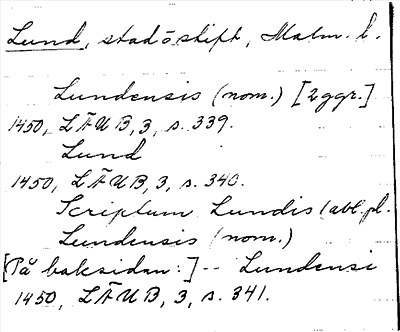 Lund, stad o. stift, Malm. l.
Lundensis (nom.) [2 ggr.]
1450, LÄUB, 3, s. 339.
Lund
1450, LÄUB, 3, s. 340.
Scriptum Lundis (abl. pl.
Lundensis (nom.)
[På baksidan:] -- Lundensi
1450, LÄUB, 3, s. 341.